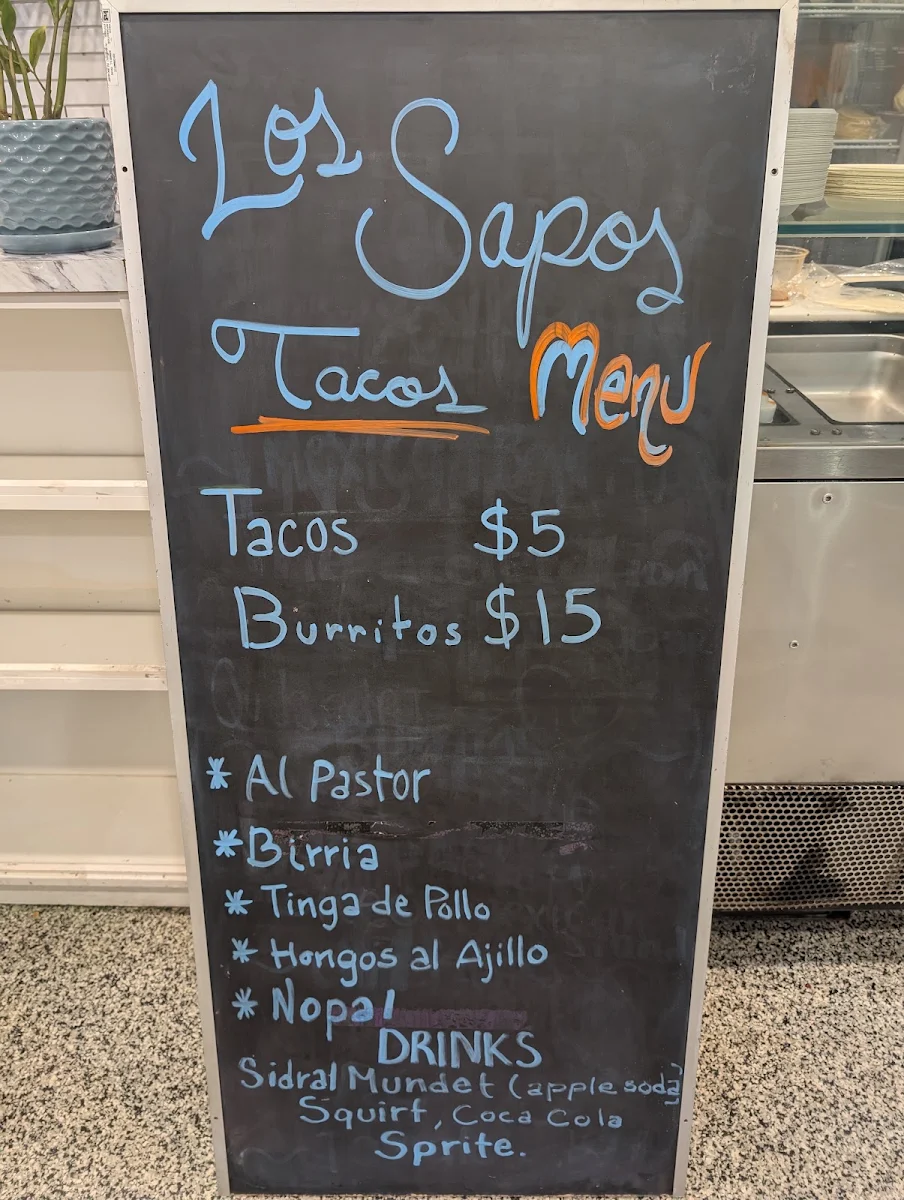 Los Sapos
Tacos Menu
Tacos $5
Burritos $15
* Al Pastor
* Birria
* Tinga de Pollo
* Hongos al Ajillo
* Nopal
DRINKS
Sidral Mundet (apple soda)
Squirt, Coca Cola
Sprite.